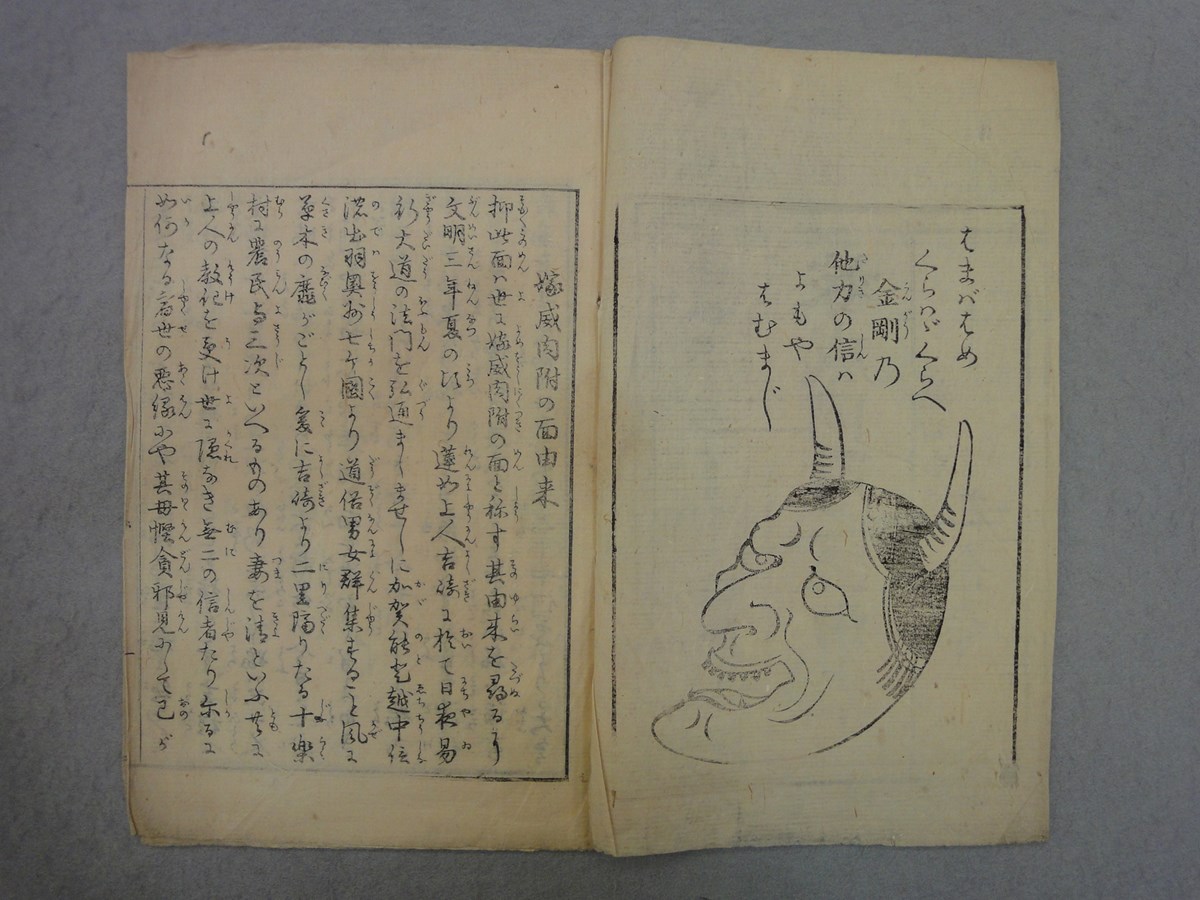 はまばはめ
くらハゞくらへ
金剛乃
他力の信ハ
よもや
はむまじ
嫁威肉附の面由来
抑此面ハ世に嫁威肉附の面と称す其由来を尋るに
文明三年夏の頃より蓮如上人吉崎に於て日夜易
行大道の法門を弘通ましませしに加賀能登越中信
濃出羽奥州七ケ國より道俗男女群集すること風に
草木の靡がごとし爰に吉崎より二里隔りたる十樂
村に農民与三次といへるものあり妻を清といふ共に
上人の教化を受け世に隠なき無二の信者たり尓るに
如何なる前世の悪縁にや其母慳貪邪見にして己が